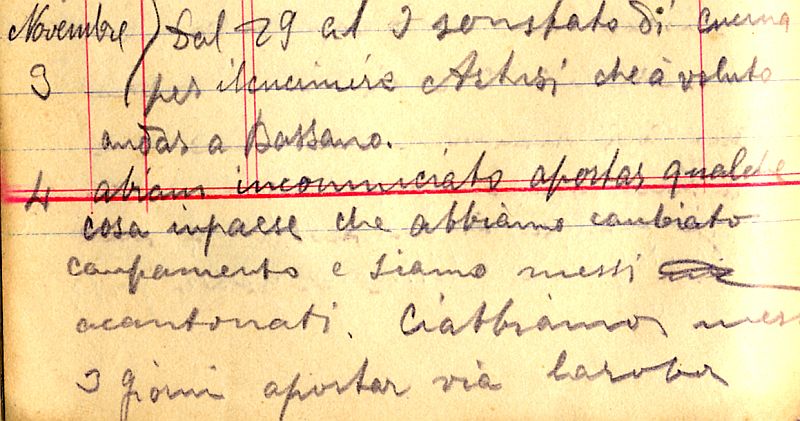 Novembre) Dal 29 al 3 sonstato di cucina
3 (per ilcucinire Astisi che à voluto
andar a Bassano.
4 abiam incominciato aportar qualche
cosa inpaese che abbiamo cambiato
campamento e siamo messi
acantonati. Ciabbiamo mess
3 giorni aportar via laroba